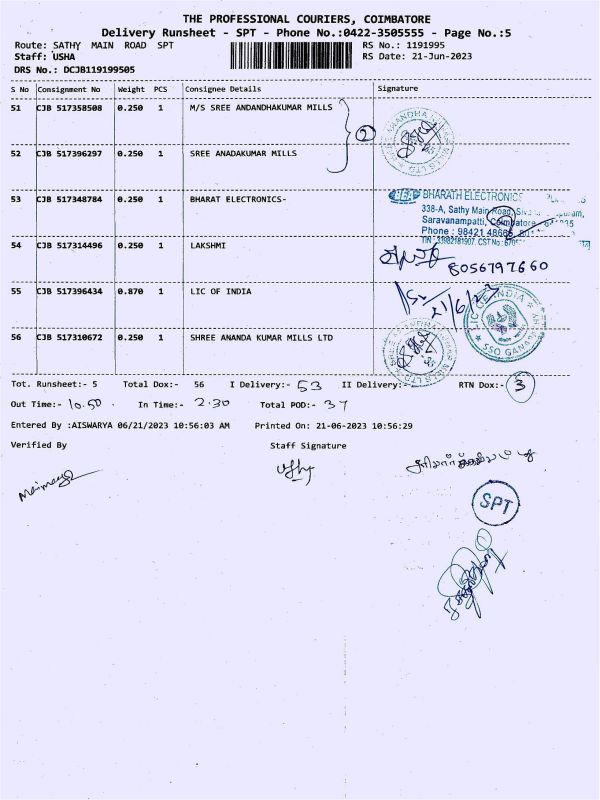 THE PROFESSIONAL COURIERS, COIMBATORE
Delivery Runsheet - SPT - Phone No.:0422-3505555 - Page No.:5
Route: SATHY MAIN ROAD SPT RS No.: 1191995
Staff: USHA RS Date: 21-Jun-2023
DRS No.: DCJB119199505
S No Consignment No Weight PCS Consignee Details Signature
51 CJB 517358508 0.250 1 M/S SREE ANDANDHAKUMAR MILLS
2
52 CJB 517396297 0.250 1 SREE ANADAKUMAR MILLS
53 CJB 517348784 0.250 1 BHARAT ELECTRONICS-
BHARATH ELECTRONICS
338-A, Sathy Main Road,
Saravanampatti, Coimbatore
Phone : 98421
54 CJB 517314496 0.250 1 LAKSHMI
8056797660
55 CJB 517396434 0.870 1 LIC OF INDIA
21/6/23
LIC OF INDIA
SSO GANAPATHY
56 CJB 517310672 0.250 1 SHREE ANANDA KUMAR MILLS LTD
Tot. Runsheet:- 5 Total Dox:- 56 I Delivery:- 53 II Delivery:- RTN Dox:- 3
Out Time:- 10.50 In Time:- 2.30 Total POD:- 37
Entered By :AISWARYA 06/21/2023 10:56:03 AM Printed On: 21-06-2023 10:56:29
Verified By Staff Signature
SPT